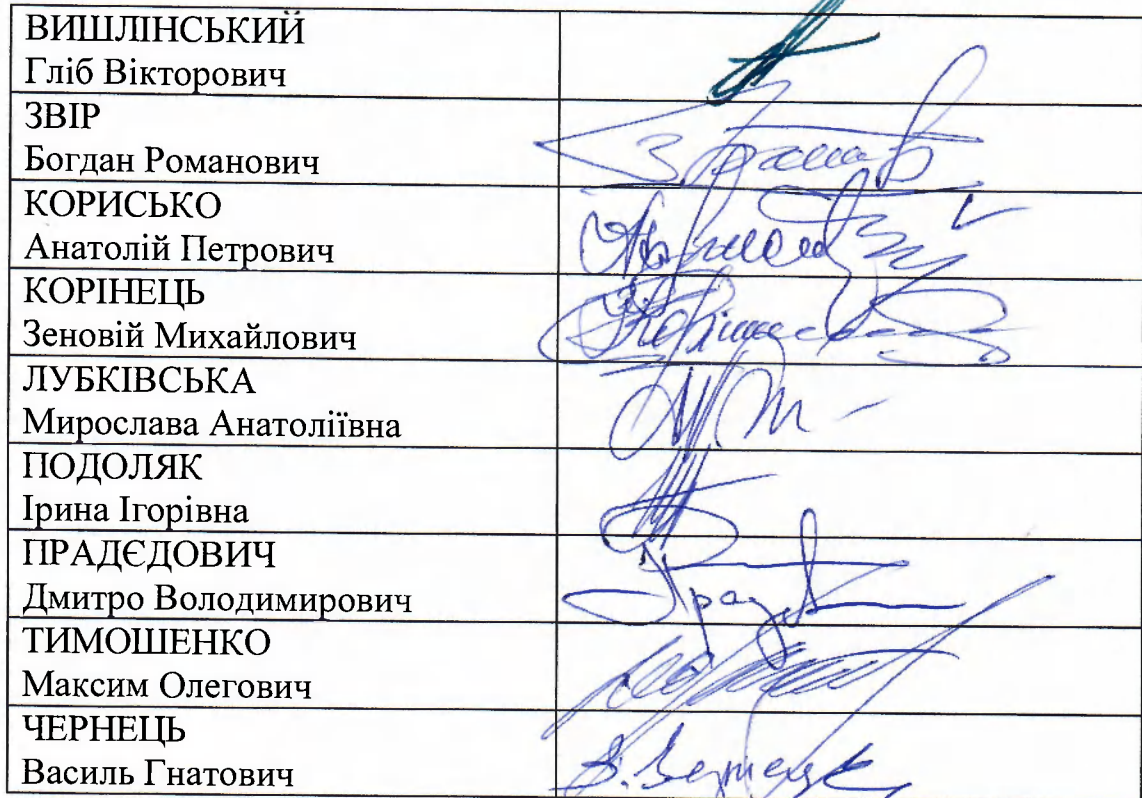 ВИШЛІНСЬКИЙ
Гліб Вікторович
ЗВІР
Богдан Романович
КОРИСЬКО
Анатолій Петрович
КОРІНЕЦЬ
Зеновій Михайлович
ЛУБКІВСЬКА
Мирослава Анатоліївна
ПОДОЛЯК
Ірина Ігорівна
ПРАДЄДОВИЧ
Дмитро Володимирович
ТИМОШЕНКО
Максим Олегович
ЧЕРНЕЦЬ
Василь Гнатович